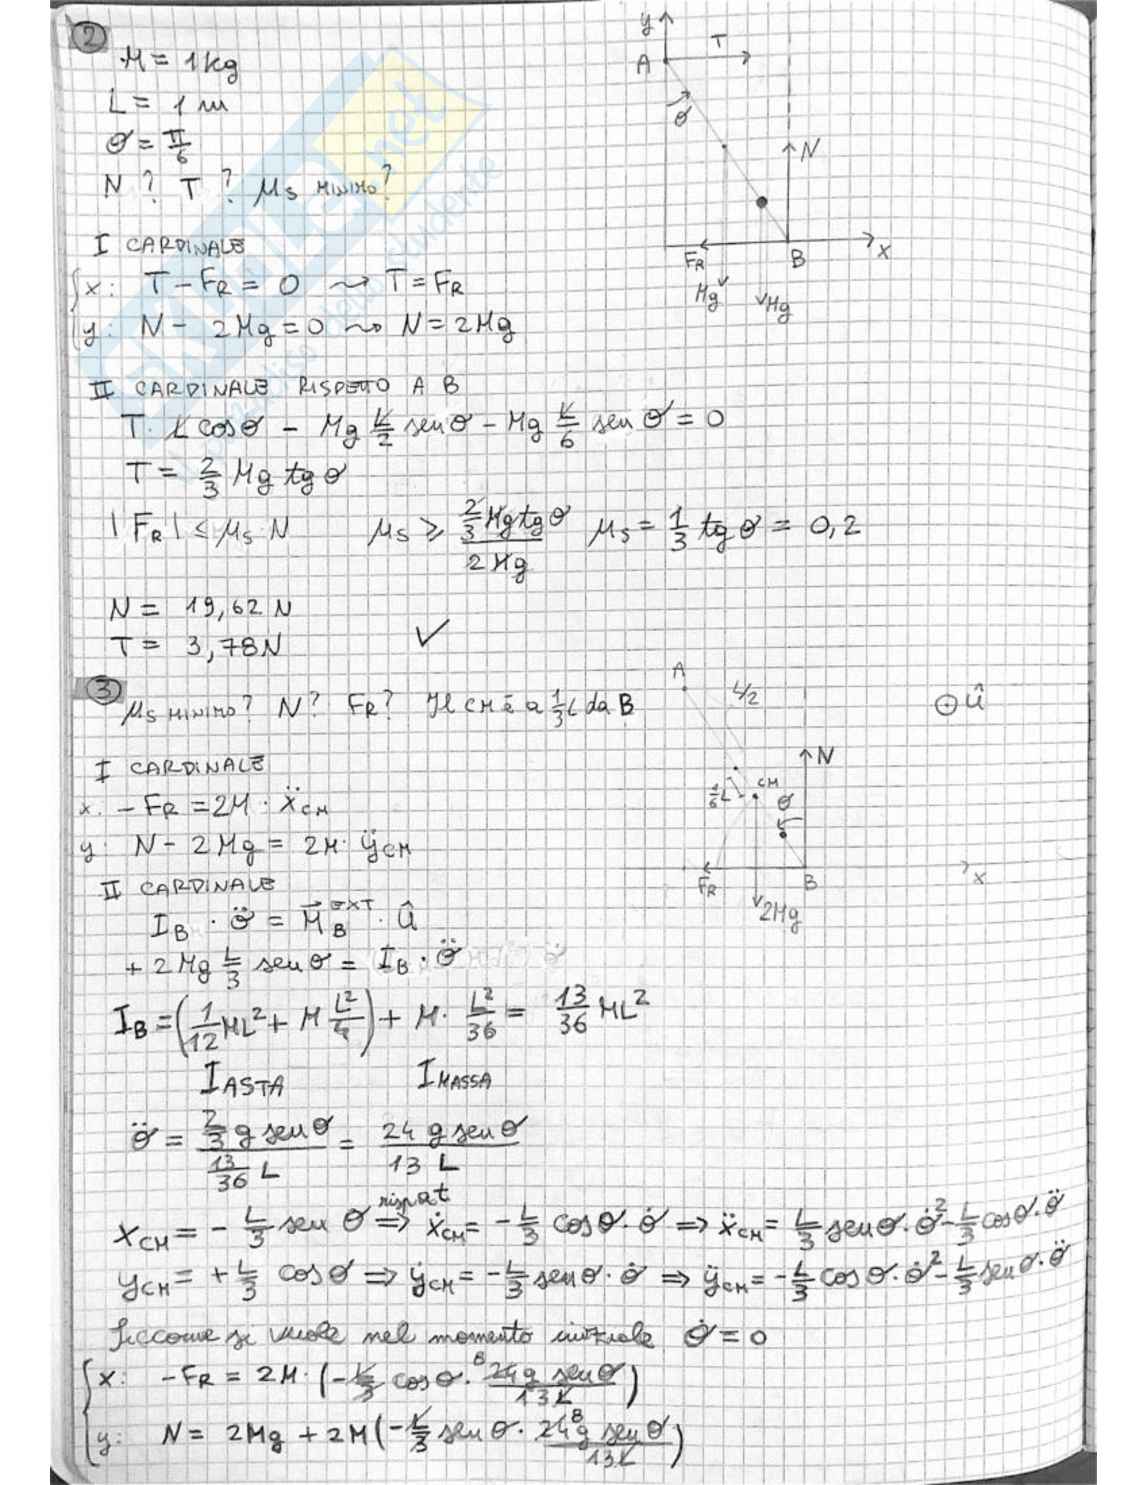 2
M = 1 kg
L = 1 m
θ = π/6
N ? T ? μs MINIMO?
I CARDINALE
x: T - FR = 0 ⤳ T = FR
y: N - 2Mg = 0 ⤳ N = 2Mg
II CARDINALE RISPETTO A B
T · L cosθ - Mg L/2 senθ - Mg L/6 senθ = 0
T = 2/3 Mg tgθ
|FR| ≤ μs N μs ≥ (2/3 Mg tgθ)/(2Mg) μs = 1/3 tgθ = 0,2
N = 19,62 N
T = 3,78 N ✓
y
A
T
θ
N
FR
B
x
Mg
Mg
3
μs MINIMO? N? FR? Il CM è a 1/3 L da B
I CARDINALE
x: - FR = 2M · ẍCM
y: N - 2Mg = 2M · ÿCM
II CARDINALE
IB · θ̈ = M⃗B EXT · û
+ 2Mg L/3 senθ = IB · θ̈
IB = (1/12 ML² + M L²/4) + M · L²/36 = 13/36 ML²
IASTA IMASSA
θ̈ = (2/3 g senθ)/(13/36 L) = (24 g senθ)/(13 L)
A
L/2
û
N
1/6 L
CM
θ
FR
B
x
2Mg
xCM = - L/3 senθ ⇒ risp a t ẋCM = - L/3 cosθ · θ̇ ⇒ ẍCM = L/3 senθ · θ̇² - L/3 cosθ · θ̈
yCM = + L/3 cosθ ⇒ ẏCM = - L/3 senθ · θ̇ ⇒ ÿCM = - L/3 cosθ · θ̇² - L/3 senθ · θ̈
Siccome si vuole nel momento iniziale θ̇ = 0
x: - FR = 2M · (- L/3 cosθ · 8 24 g senθ / 13 L)
y: N = 2Mg + 2M (- L/3 senθ · 24 8 g senθ / 13 L)